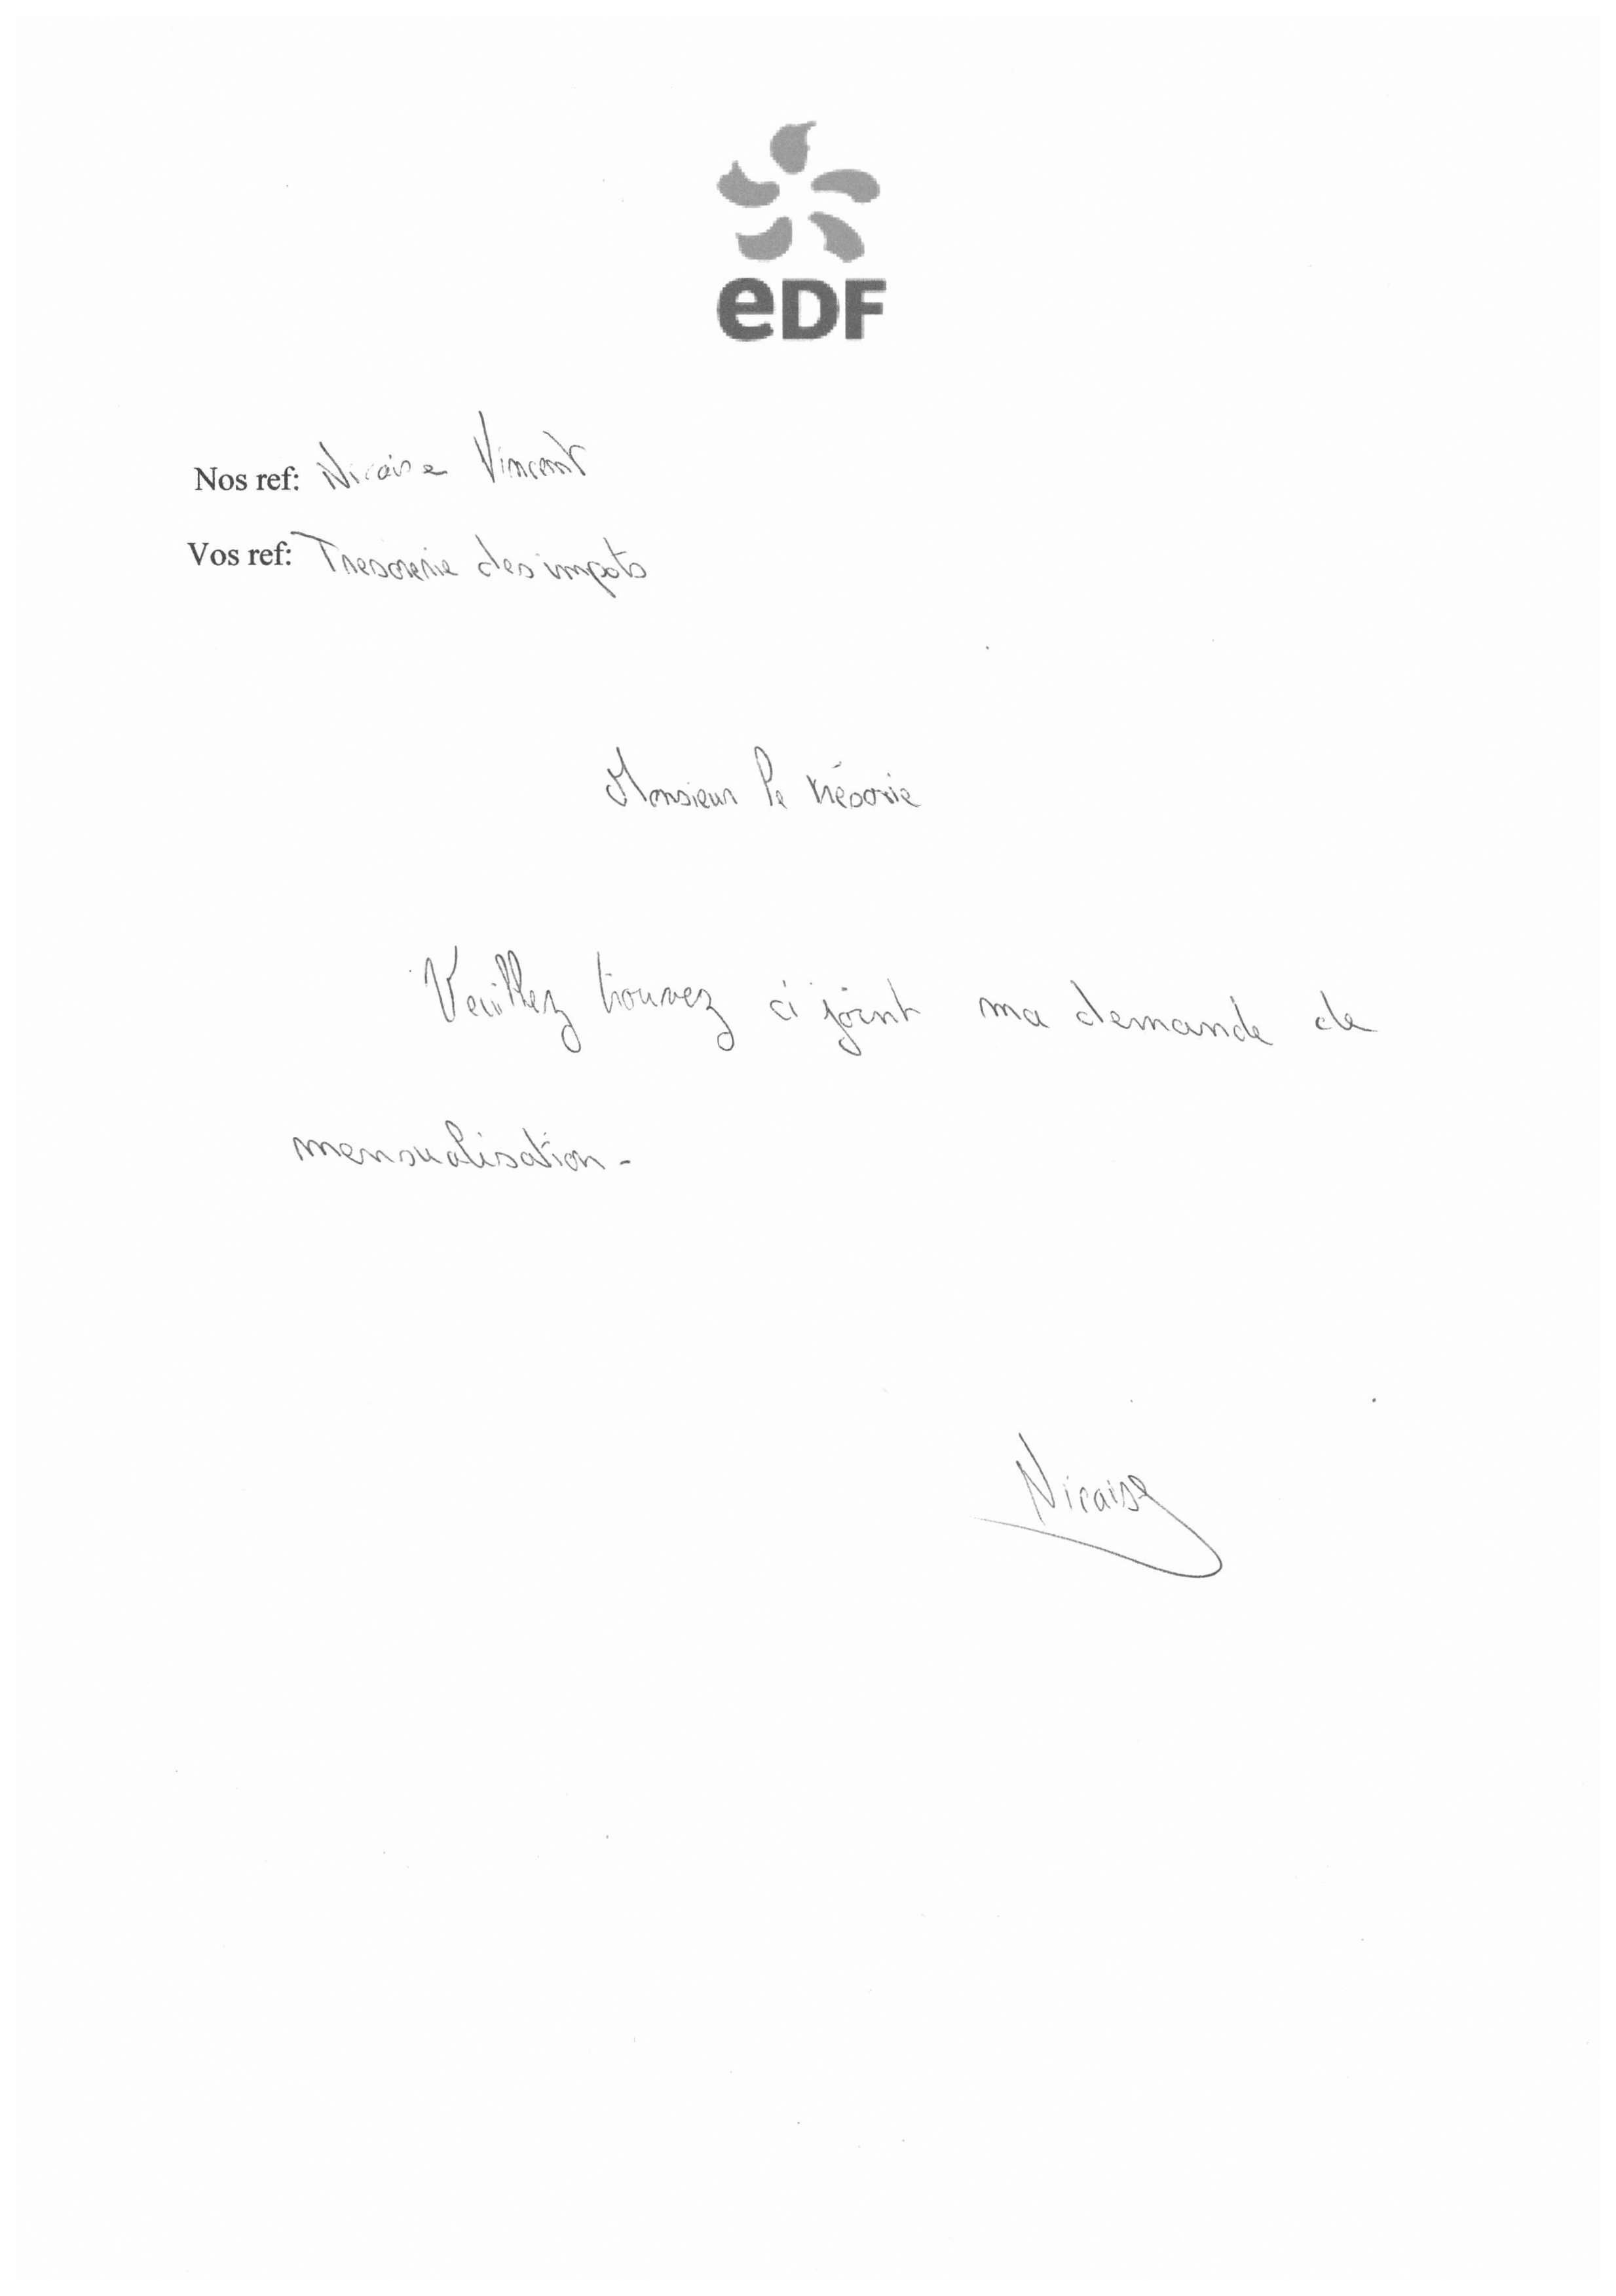 eDF
Nos ref: Nicaise Vincent
Vos ref: Tresorerie des impots
Monsieur le trésorie
Veuillez trouvez ci joint ma demande de
mensualisation.
Nicaise